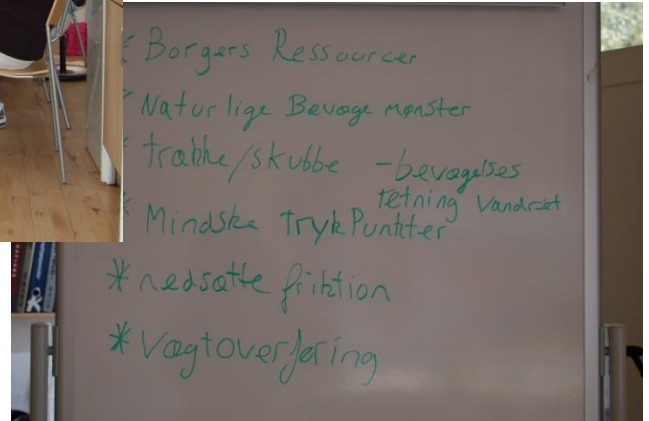 * Borgers Ressourcer
* Naturlige Bevæge mønster
* trække/skubbe - bevægelses
retning vandret
* Mindske trykPunkter
* nedsætte friktion
* Vægtoverføring